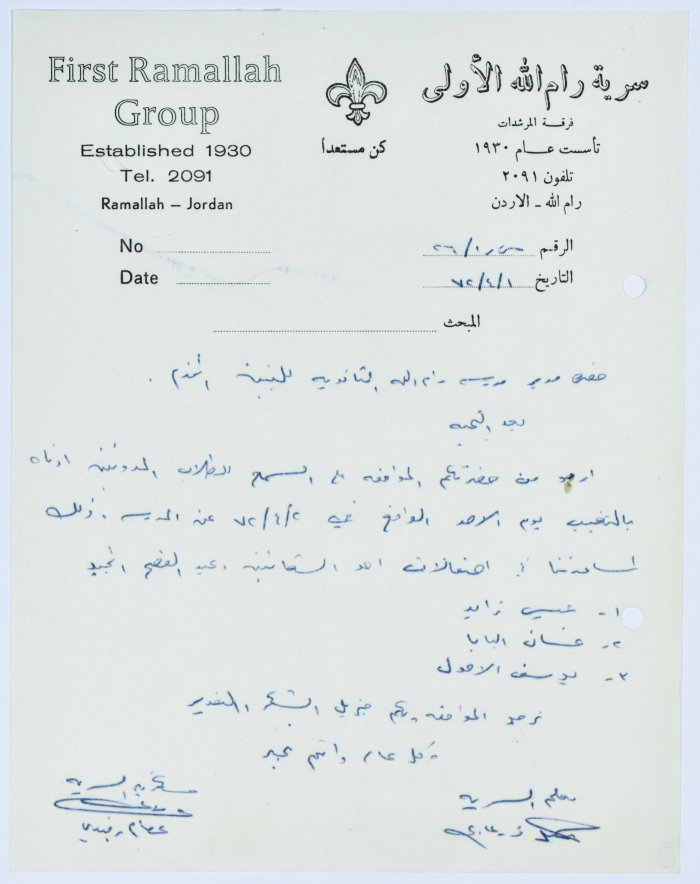 First Ramallah
Group
Established 1930
Tel. 2091
Ramallah – Jordan
كن مستعداً
سرية رام الله الأولى
فرقة المرشدات
تأسست عام ١٩٣٠
تلفون ٢٠٩١
رام الله - الاردن
No
Date
الرقم
التاريخ ٧٢/٤/١
المبحث
حضرة مدير مدرسة رام الله الثانويه للبنين المحترم .
بعد التحيه
ارجو من حضرتكم الموافقه على السماح للطلاب المدونين ادناه
بالتغيب يوم الاحد الواقع في ٧٢/٤/٢ عن المدرسه . وذلك
لمساعدتنا في احتفالات احد الشعانين وعيد الفصح المجيد
١- عيسى زايد
٢- غسان البابا
٣- يوسف
نرجو الموافقه ولكم جزيل الشكر والتقدير
وكل عام وانتم بخير
معلم السريه
السريه
عصام